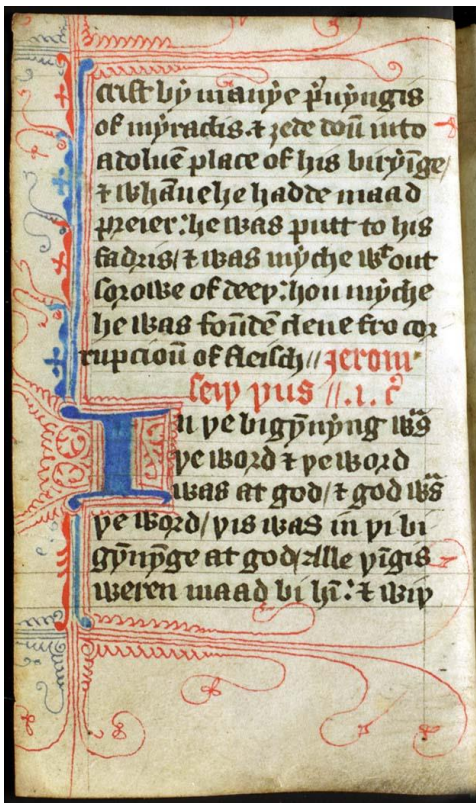 crist bẏ manẏe p̾uẏngis
of mẏraclis. ⁊ ȝede doū into
a doluē place of his birẏīge/
⁊ whāne he hadde maad
preier: he was putt to his
fadris/ ⁊ was mẏche wᵗout
sorowe of deeþ: hou mẏche
he was foūdē clene fro cor
rupcioū of fleisch// Jerom
seiþ þus //.i. cͦ
In þe bigẏnẏng wᵃs
þe word ⁊ þe word
was at god/ ⁊ god wᵃs
þe word/ þis was in þi bi
gẏnẏge at god/ alle þīgis
weren maad bi hī: ⁊ wiþ